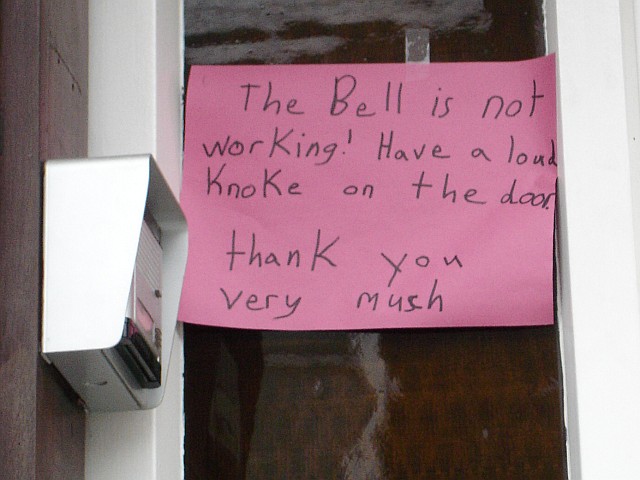 The Bell is not
working! Have a loud
Knoke on the door.
thank you
very mush